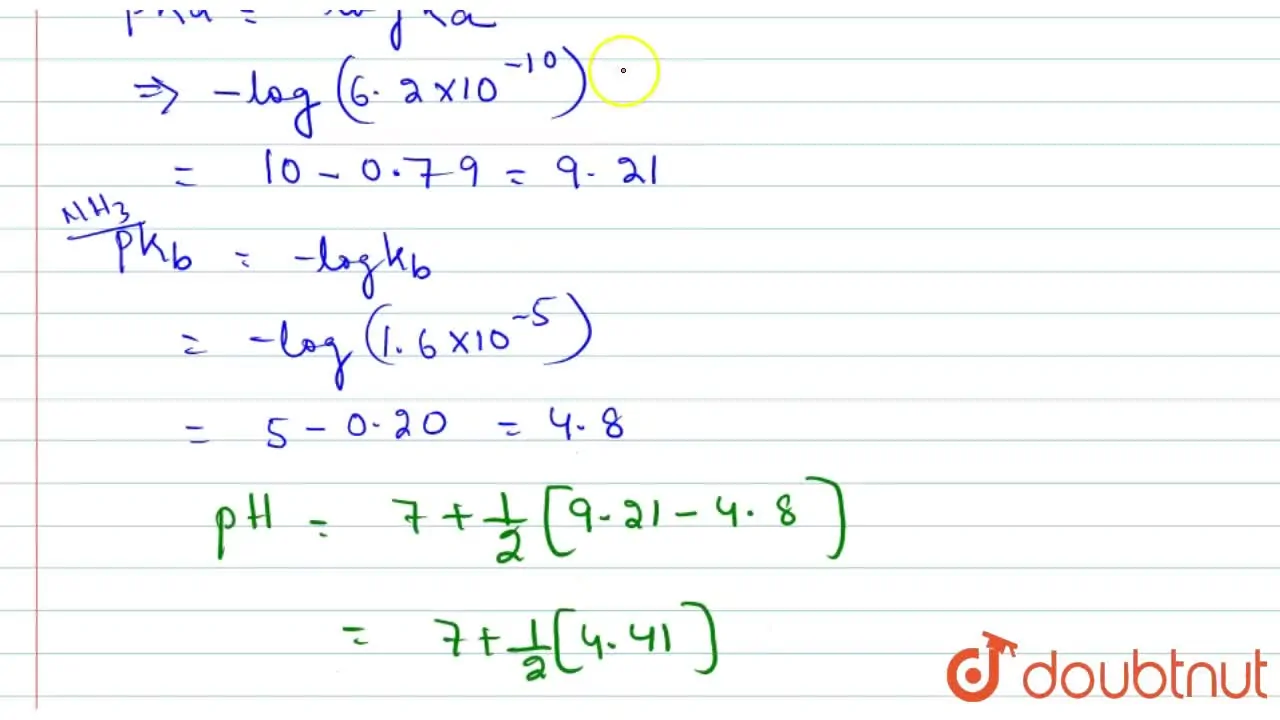 pKa = -log Ka
⇒ -log (6.2×10^-10)
= 10 - 0.79 = 9.21
NH3
pKb = -log Kb
= -log (1.6×10^-5)
= 5 - 0.20 = 4.8
pH = 7 + 1/2 [9.21 - 4.8]
= 7 + 1/2 [4.41]
doubtnut